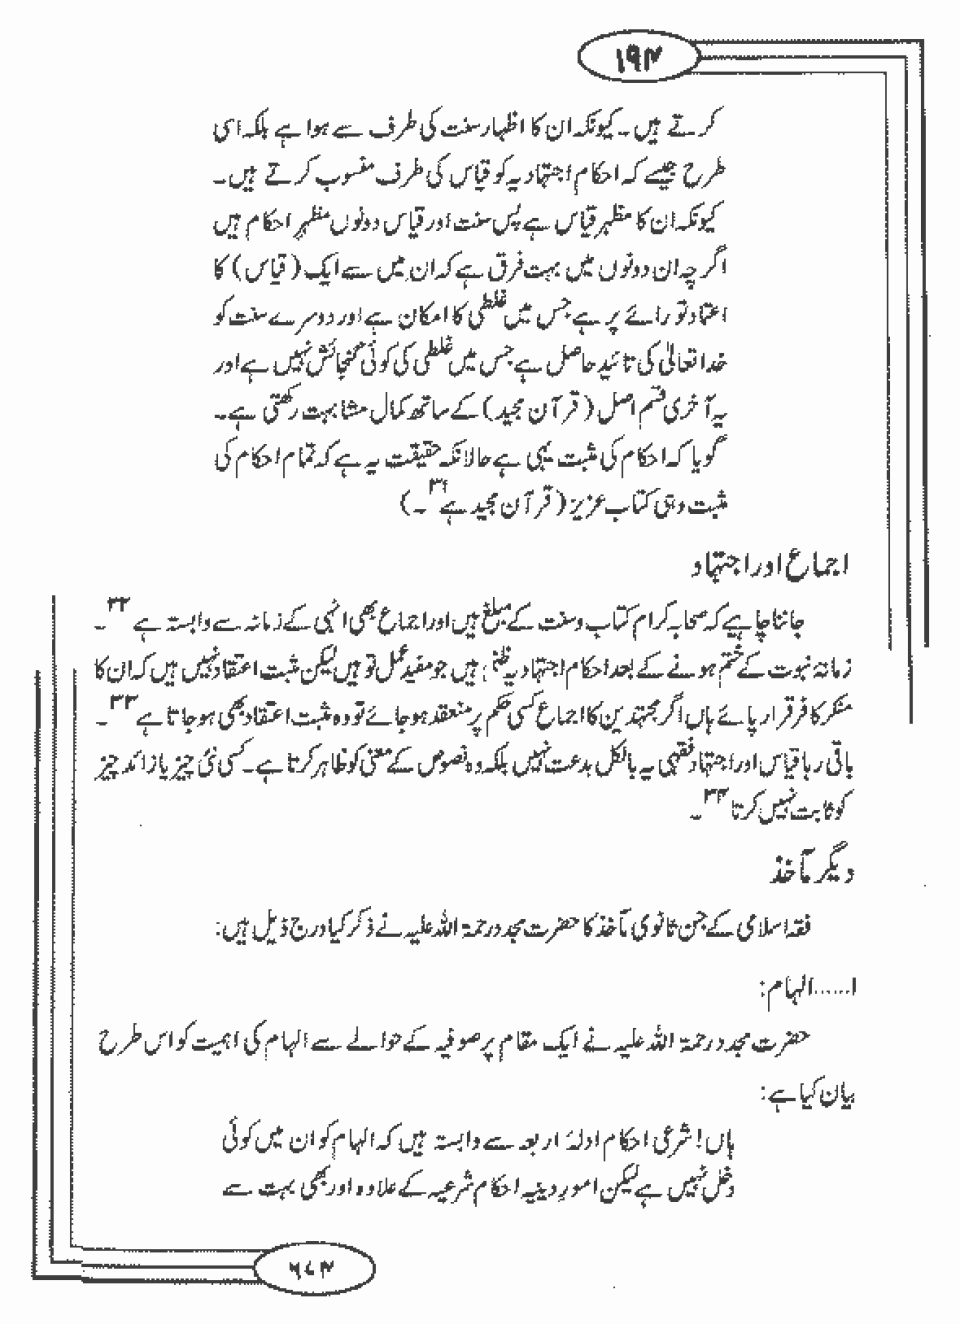 ۱۹۴
کرتے ہیں۔ کیونکہ ان کا اظہار سنت کی طرف سے ہوا ہے بلکہ اسی
طرح جیسے کہ احکام اجتہادیہ کو قیاس کی طرف منسوب کرتے ہیں۔
کیونکہ ان کا مظہر قیاس ہے پس سنت اور قیاس دونوں مظہرِ احکام ہیں
اگرچہ ان دونوں میں بہت فرق ہے کہ ان میں سے ایک (قیاس) کا
اعتماد تو رائے پر ہے جس میں غلطی کا امکان ہے اور دوسرے سنت کو
خدا تعالیٰ کی تائید حاصل ہے جس میں غلطی کی کوئی گنجائش نہیں ہے اور
یہ آخری قسم اصل (قرآن مجید) کے ساتھ کمال مشابہت رکھتی ہے۔
گویا کہ احکام کی مثبت یہی ہے حالانکہ حقیقت یہ ہے کہ تمام احکام کی
مثبت وہی کتاب عزیز (قرآن مجید ہے۳۱۔)
اجماع اور اجتہاد
جاننا چاہیے کہ صحابہ کرام کتاب و سنت کے مبلغ ہیں اور اجماع بھی انہی کے زمانہ سے وابستہ ہے ۳۲۔
زمانہ نبوت کے ختم ہونے کے بعد احکام اجتہادیہ ظنی ہیں جو مفید عمل تو ہیں لیکن مثبت اعتقاد نہیں ہیں کہ ان کا
منکر کافر قرار پائے ہاں اگر مجتہدین کا اجماع کسی حکم پر منعقد ہو جائے تو وہ مثبت اعتقاد بھی ہو جاتا ہے ۳۳۔
باقی رہا قیاس اور اجتہاد فقہی یہ بالکل بدعت نہیں بلکہ وہ نصوص کے معنی کو ظاہر کرتا ہے۔ کسی نئی چیز یا زائد چیز
کو ثابت نہیں کرتا ۳۴۔
دیگر مآخذ
فقہ اسلامی کے جن ثانوی مآخذ کا حضرت مجدد رحمۃ اللہ علیہ نے ذکر کیا درج ذیل ہیں:
۱......الہام:
حضرت مجدد رحمۃ اللہ علیہ نے ایک مقام پر صوفیہ کے حوالے سے الہام کی اہمیت کو اس طرح
بیان کیا ہے:
ہاں! شرعی احکام ادلۂ اربعہ سے وابستہ ہیں کہ الہام کو ان میں کوئی
دخل نہیں ہے لیکن امورِ دینیہ احکام شرعیہ کے علاوہ اور بھی بہت سے
۶۷۴